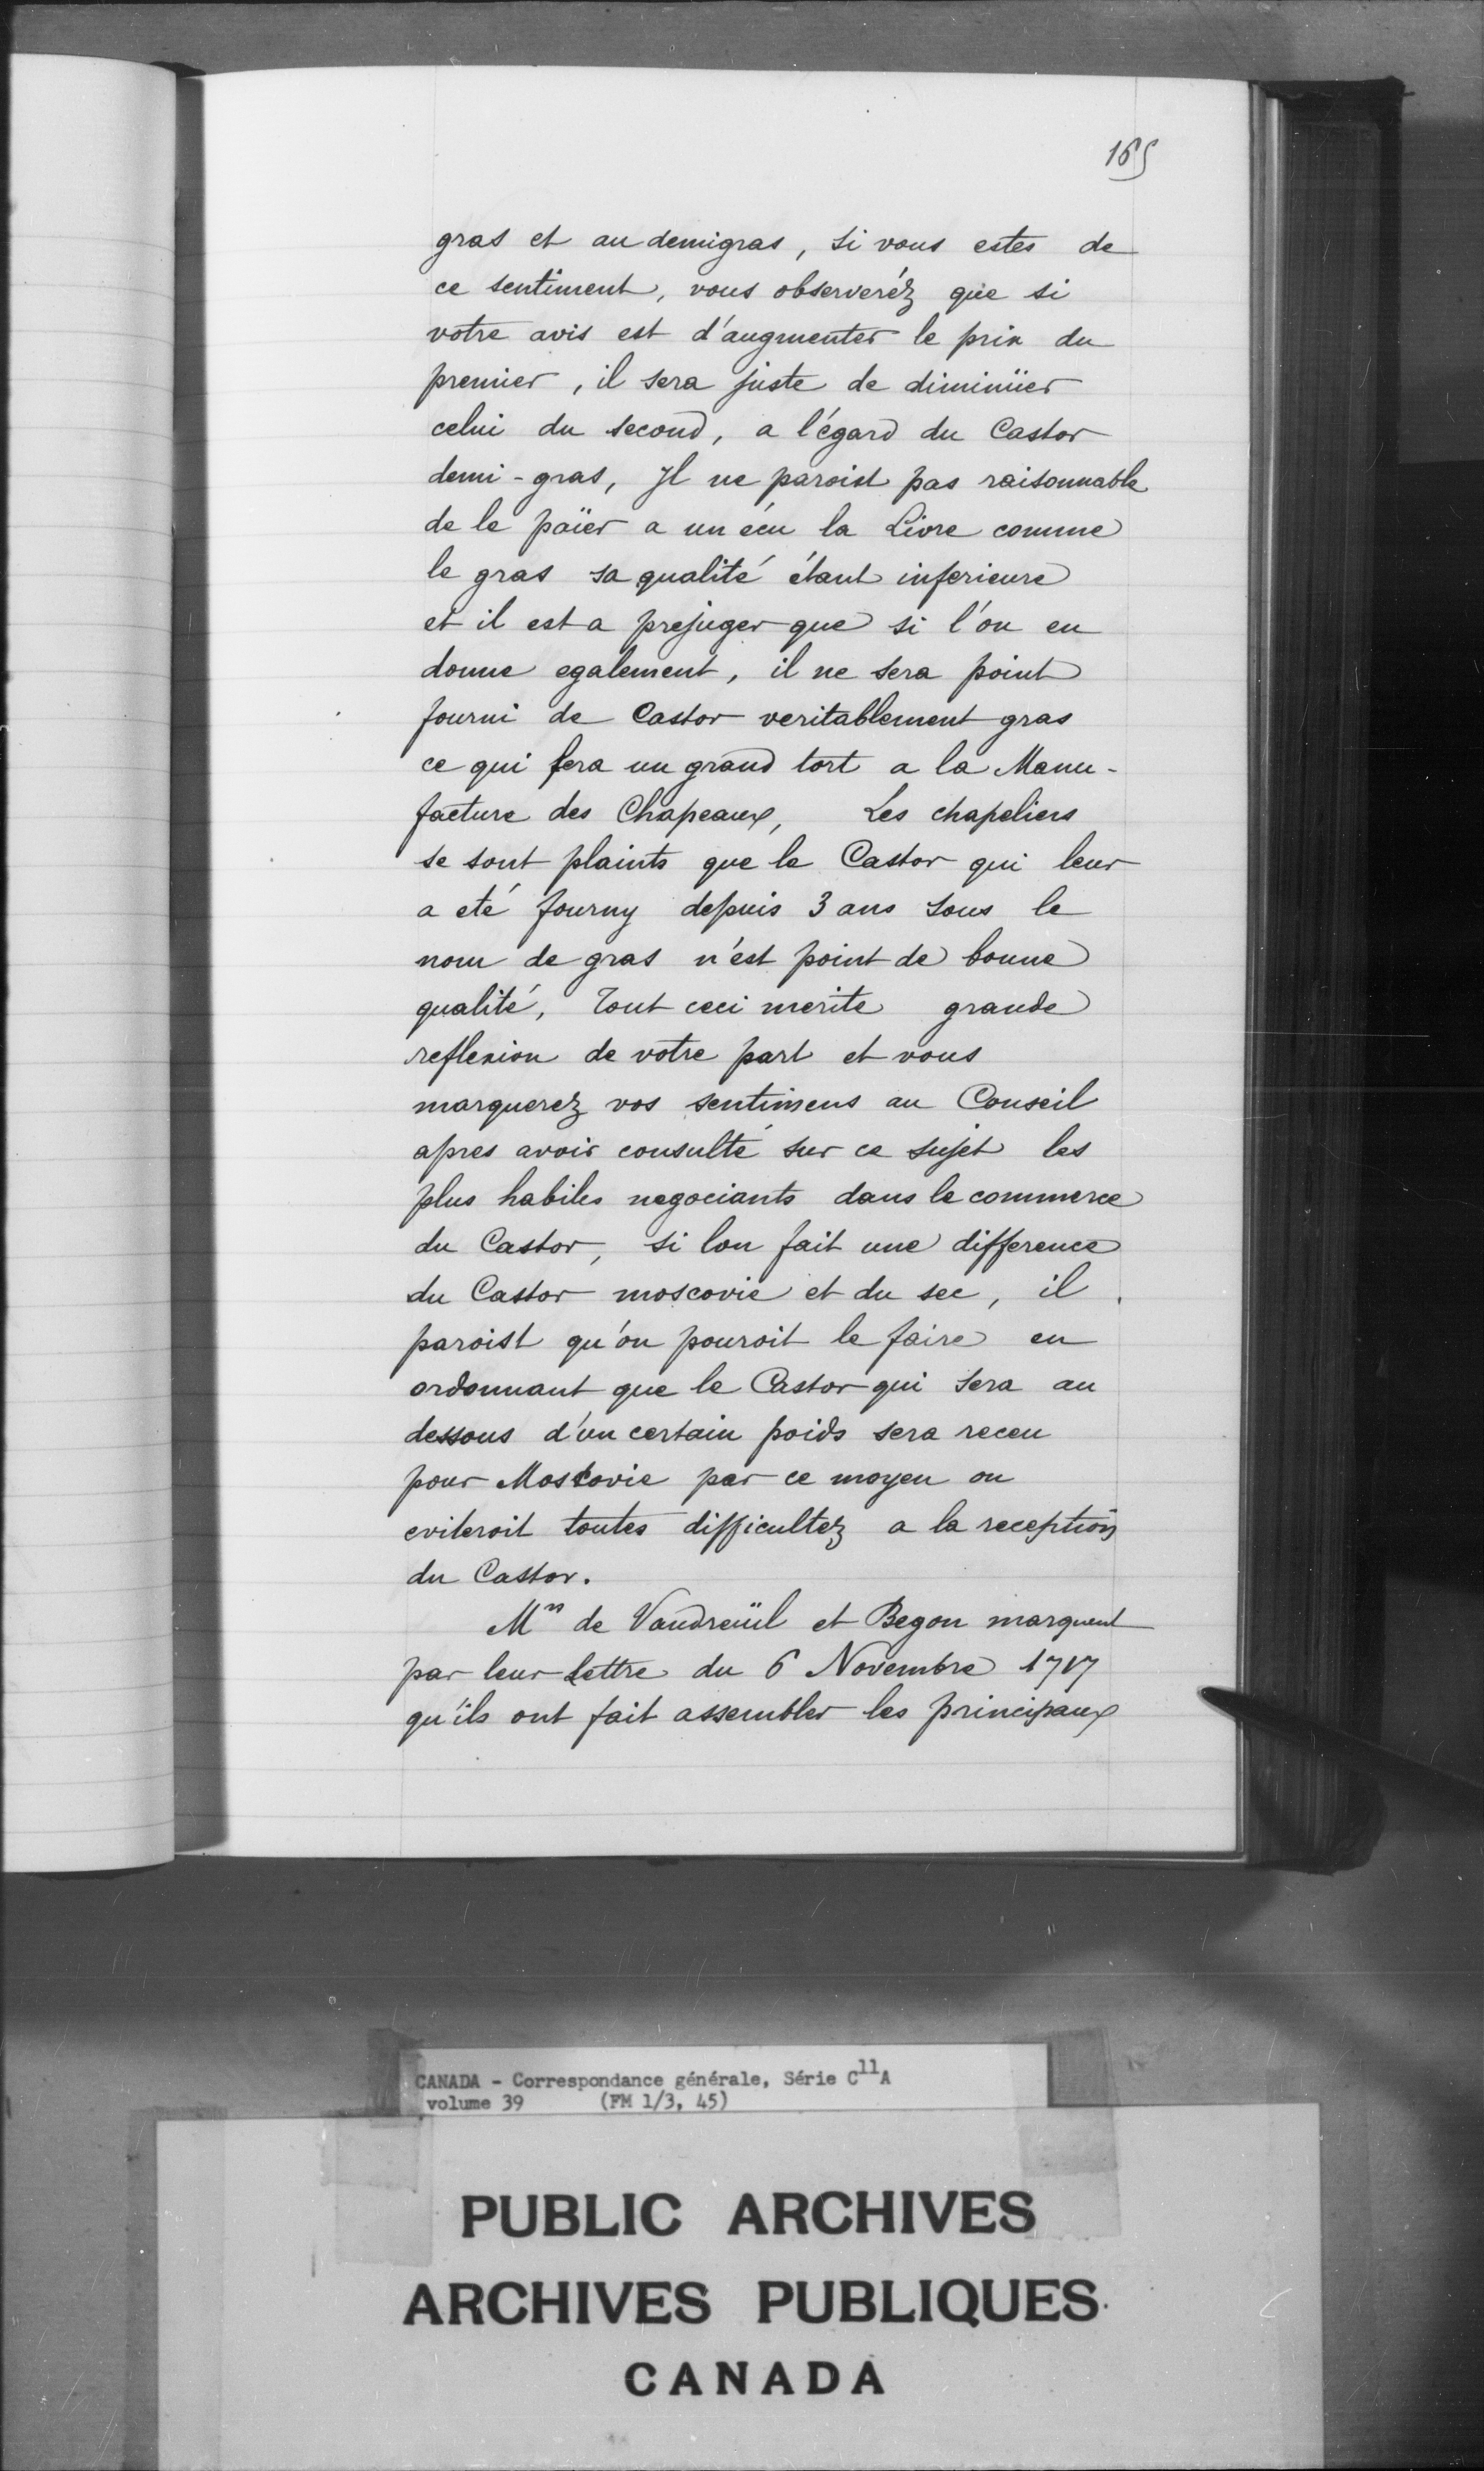 165
gras et au demigras, si vous estes de
ce sentiment, vous observeréz que si
votre avis est d'augmenter le prix du
premier, il sera juste de diminüer
celui du second, a l'égard du Castor
demi-gras, Il ne paroist pas raisonnable
de le païer a un écu la Livre comme
le gras sa qualité étant inferieure
et il est a prejuger que si l'on en
donne egalement, il ne sera point
fourni de Castor veritablement gras
ce qui fera un grand tort a la Manu-
facture des Chapeaux, Les chapeliers
se sont plaints que le Castor qui leur
a eté fourny depuis 3 ans sous le
nom de gras n'est point de bonne
qualité, Tout ceci merite grande
reflexion de votre part et vous
marquerez vos sentimens au Conseil
apres avoir consulté sur ce sujet les
plus habiles negociants dans le commerce
du Castor, si lon fait une difference
du Castor moscovie et du sec, il
paroist qu'on pouroit le faire en
ordonnant que le Castor qui sera au
dessous d'un certain poids sera receu
pour Moscovie par ce moyen on
eviteroit toutes difficultez a la reception
du Castor.
Mrs de Vaudreüil et Begon marquent
par leur Lettre du 6 Novembre 1717
qu'ils ont fait assembler les principaux
CANADA - Correspondance générale, Série C11A
volume 39 (FM 1/3, 45)
PUBLIC ARCHIVES
ARCHIVES PUBLIQUES
CANADA